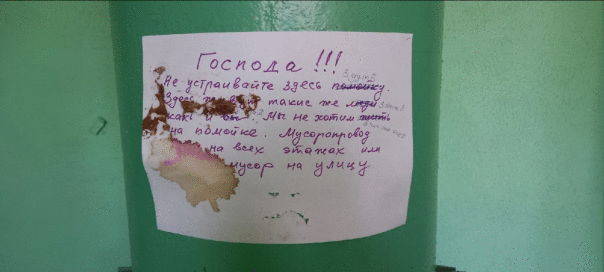 Господа !!!
Не устраивайте здесь помойку.
Здесь такие же люди
как и Мы не хотим жить
на помойке. Мусоропровод
на всех этажах или
мусор на улицу